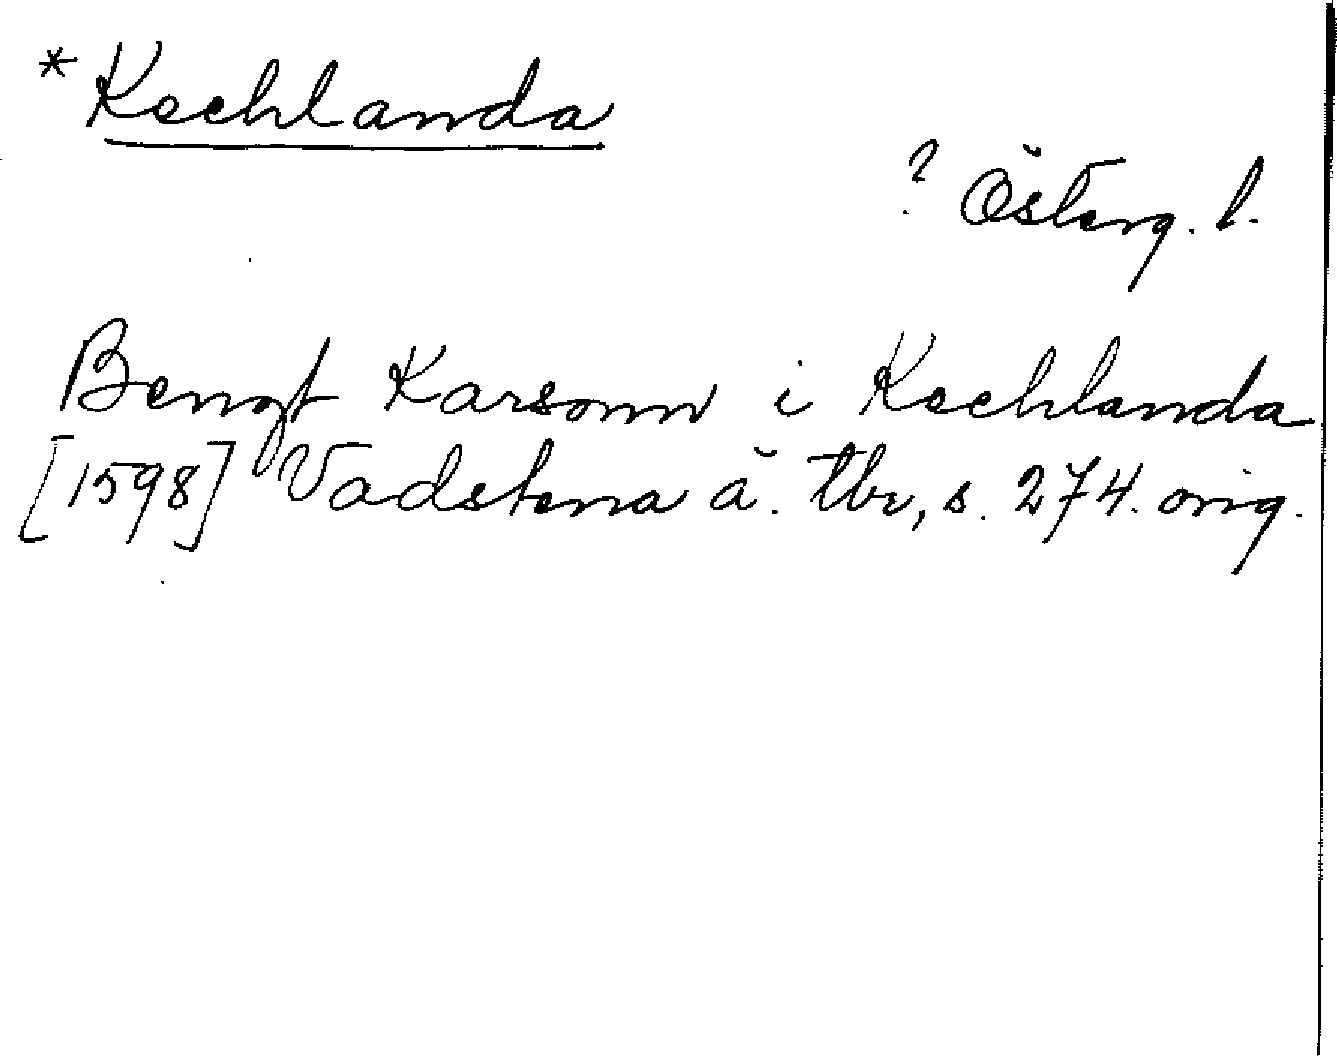 * Kechlanda
? Österg. l.
Bengt Karsonn i Kechlanda
[1598] Vadstena ä. tbr, s. 274. orig.